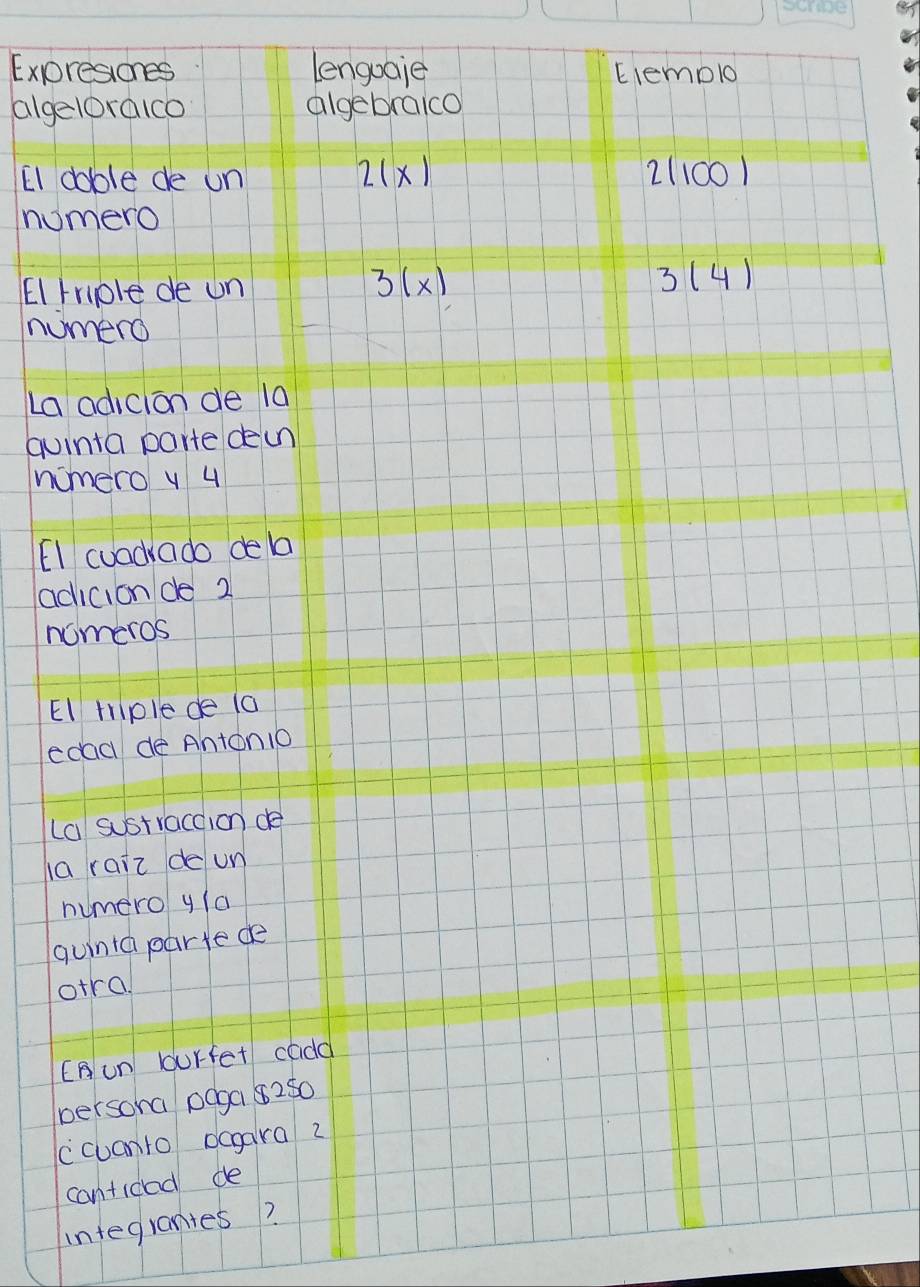 Scribe
Expresiones
algebraico
lenguaje
algebraico
Ejemplo
El doble de un
número
2(x)
2(100)
El triple de un
número
3(x)
3(4)
La adición de la
quinta parte de un
número y 4
El cuadrado de la
adición de 2
números
El triple de la
edad de Antonio
La sustracción de
la raíz de un
numero y la
quinta parte de
otra.
En un buffet cada
persona paga $250
¿cuanto pagara 2
cantidad de
integrantes?